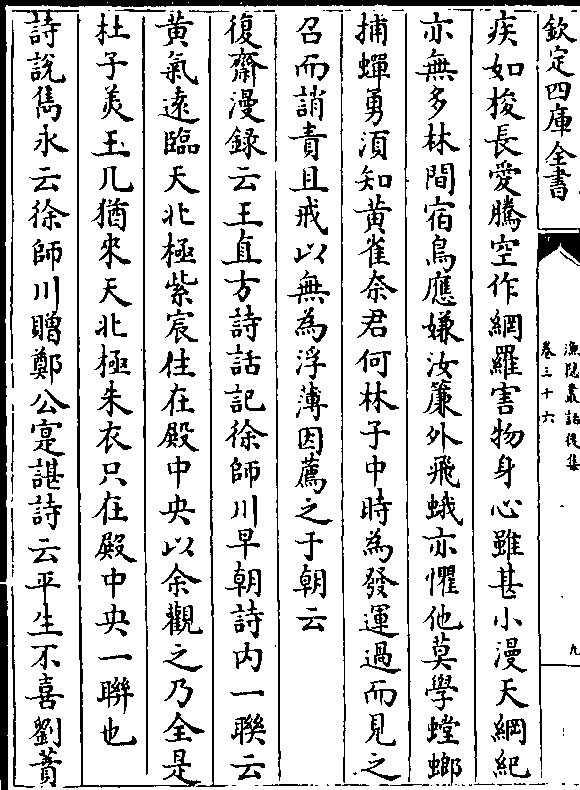 欽定四庫全書
漁隠叢話後集
卷三十六
九
疾如梭長愛騰空作網羅害物身心雖甚小漫天綱紀
亦無多林間宿鳥應嫌汝簾外飛蛾亦懼他莫學螳螂
捕蟬勇須知黄雀奈君何林子中時為發運過而見之
召而誚責且戒以無為浮薄因薦之于朝云
復齋漫録云王直方詩話記徐師川早朝詩内一聨云
黄氣遠臨天北極紫宸住在殿中央以余觀之乃全是
杜子羙玉几猶來天北極朱衣只在殿中央一聨也
詩說雋永云徐師川贈鄭公寔諶詩云平生不喜劉蕡